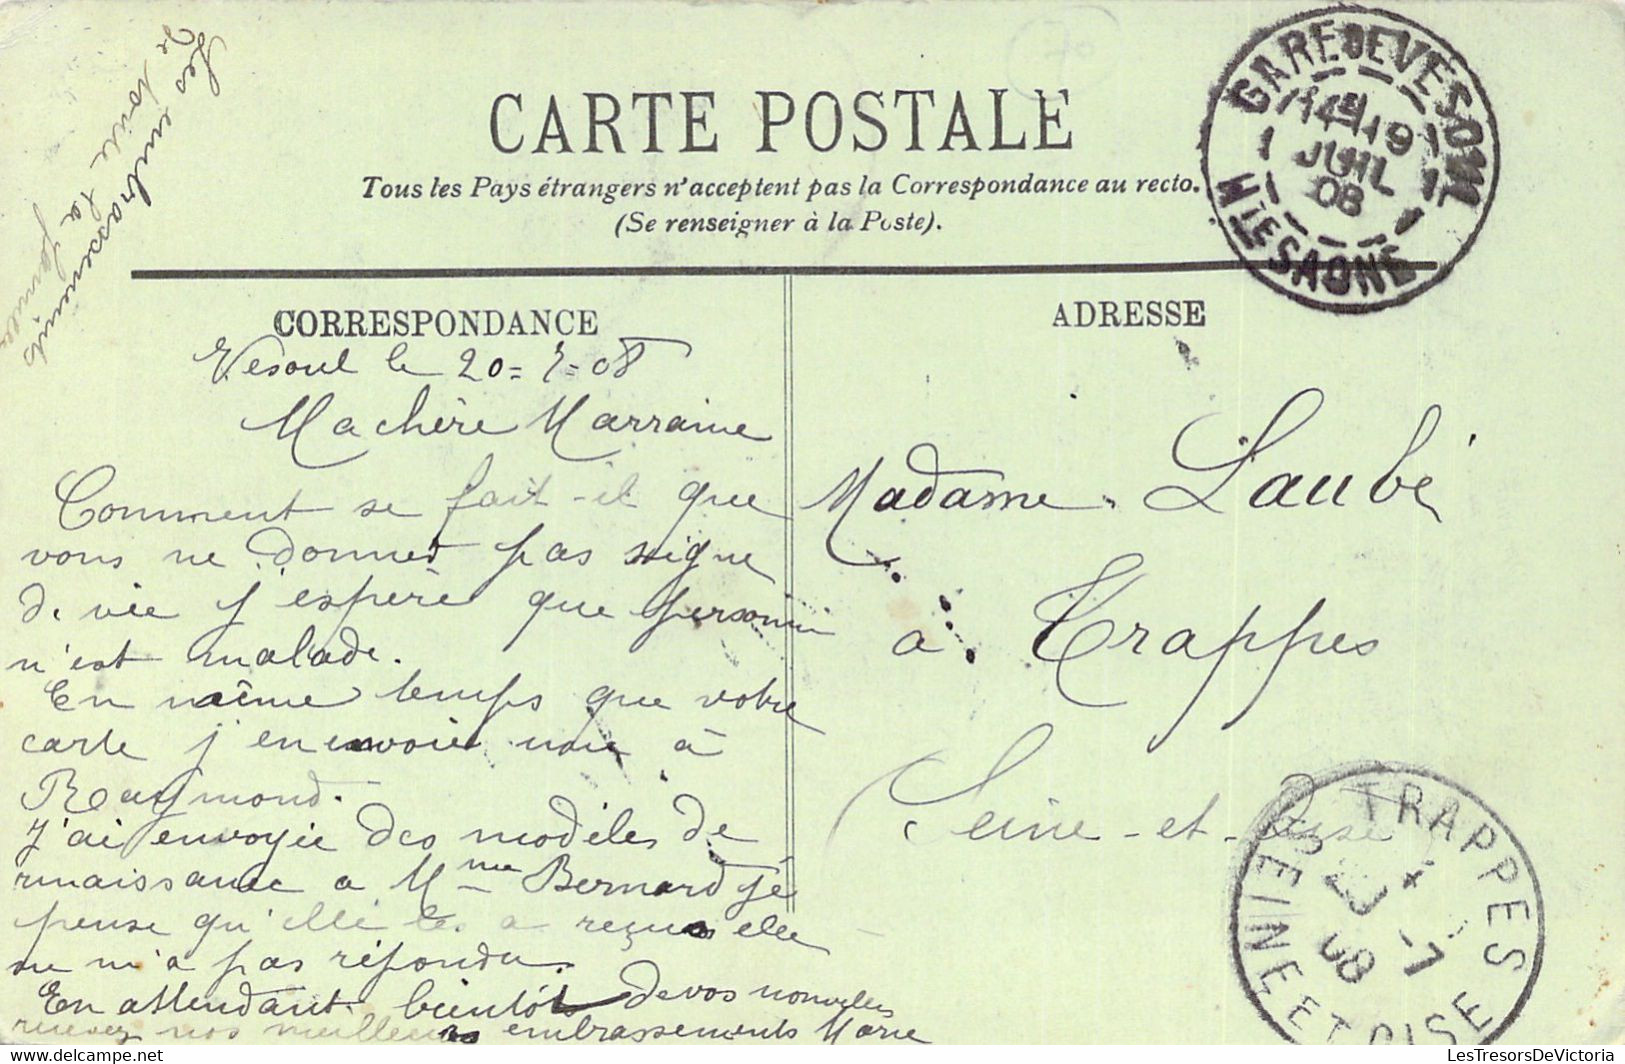 Les embrassements
de toute la famille
CARTE POSTALE
Tous les Pays étrangers n'acceptent pas la Correspondance au recto.
(Se renseigner à la Poste).
GARE DE VESOUL
14 19
JUIL
08
HTE SAONE
CORRESPONDANCE
Vesoul le 20=7=08
Ma chère Marraine
Comment se fait-il que
vous ne donnez pas signe
de vie j'espère que personne
n'est malade.
En même temps que votre
carte j'en envoie une à
Raymond.
J'ai envoyie des modèles de
rnaissance a Mme Bernard je
pense qu'elle les a reçus elle
ne m'a pas répondu.
En attendant bientôt de vos nouvelles
recevez nos meilleurs embrassements Marie
ADRESSE
Madame Laubé
à Trappes
Seine-et-Oise
TRAPPES
23
-7
08
SEINE ET OISE
LesTresorsDeVictoria